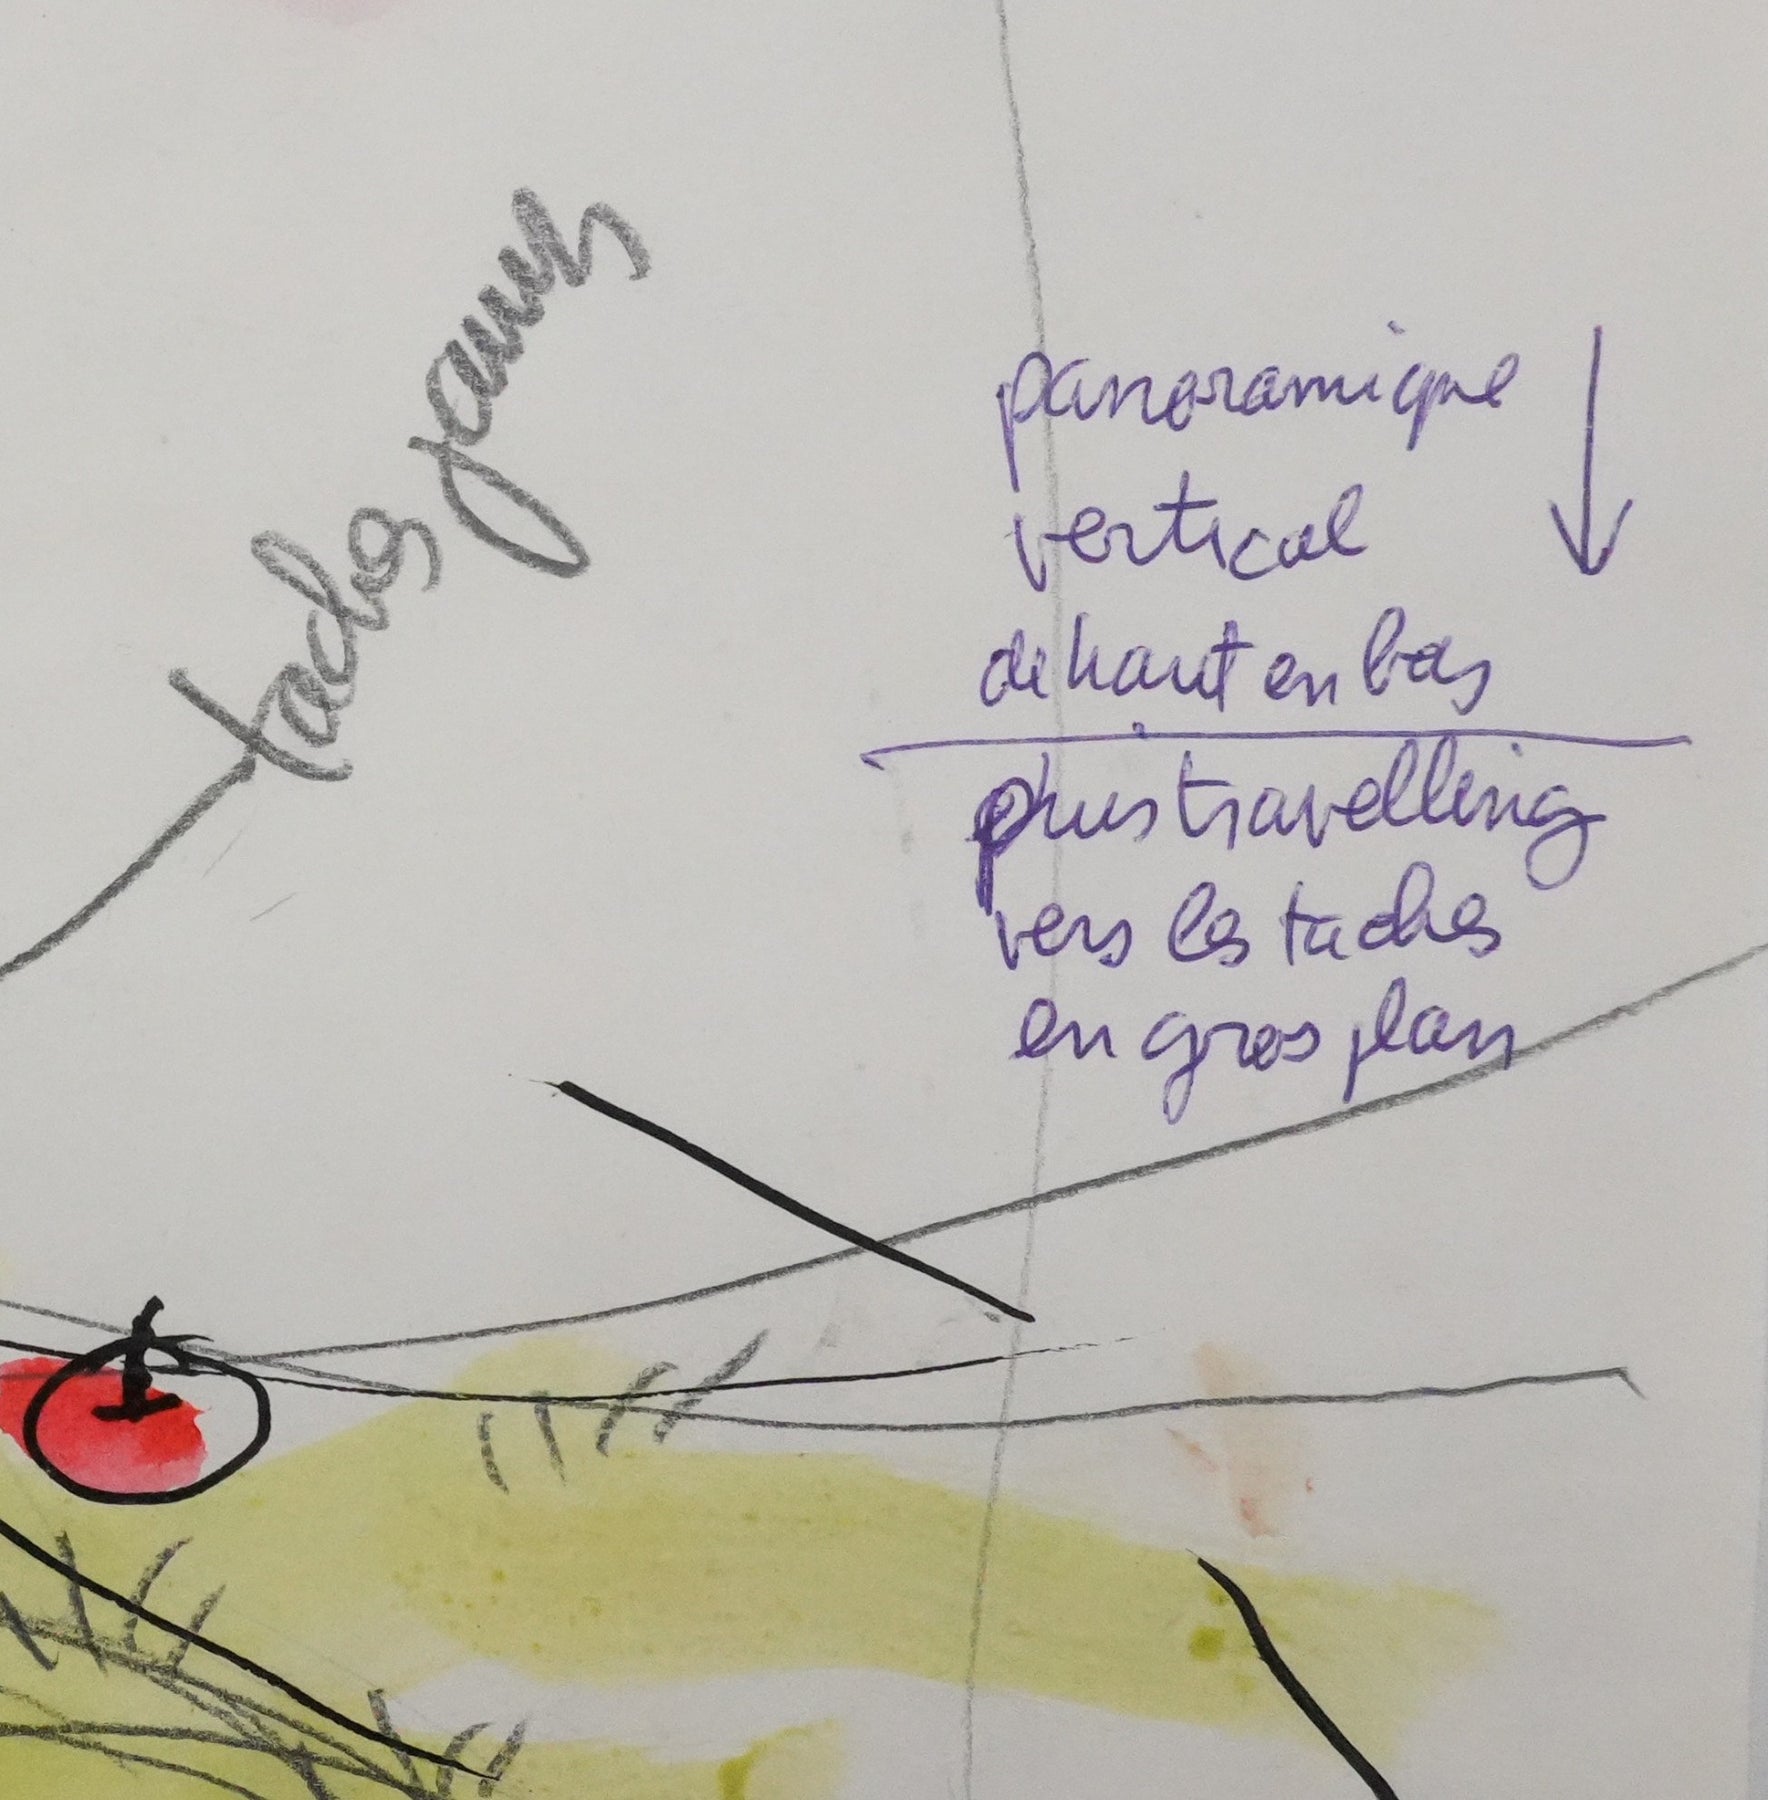 taches jaunes
panoramique
vertical
de haut en bas
puis travelling
vers les taches
en gros plan